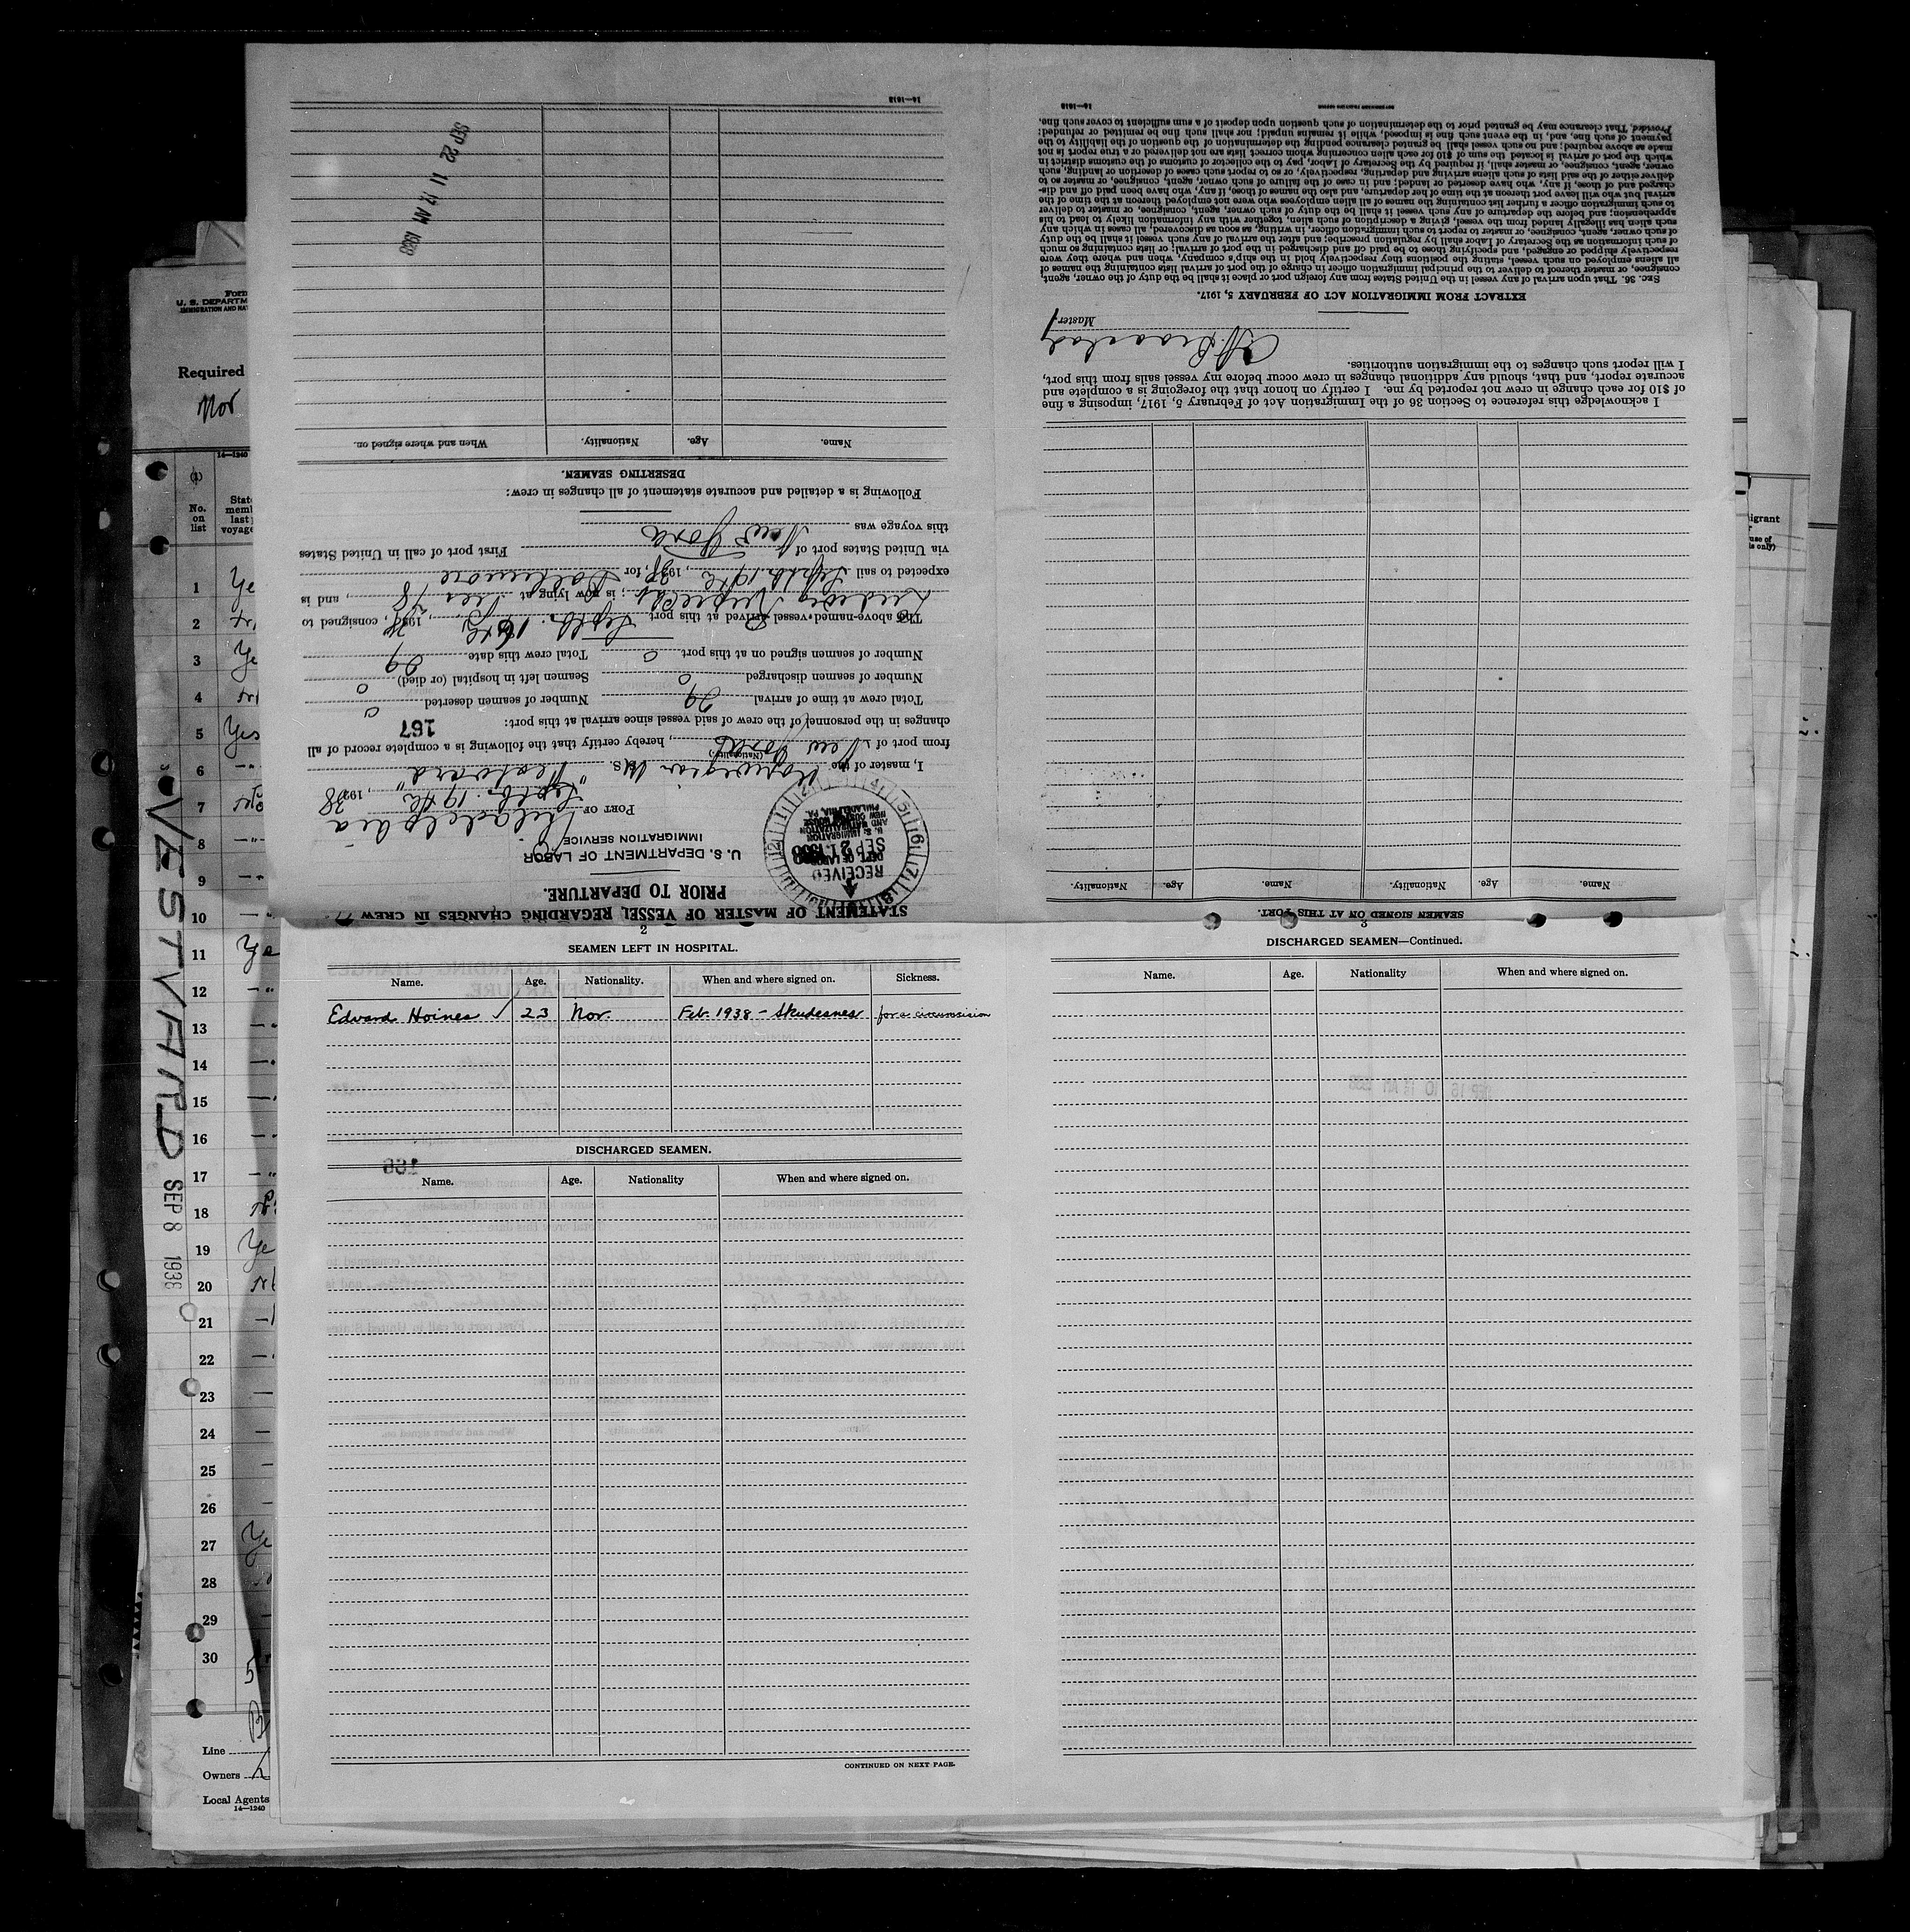 Form
U. S. DEPARTM
IMMIGRATION AND NAT
Required
Nor
14—1240
(1)
No. on list
State
memb
last
voyage
1 Ye
2
3 Ye
4
5 Yes
6 —"
7
8 —"—
9 —"
10
11 Ye
12 —"
13
14
15
16
17 —"
18
19 Ye
20
21
22
23
24
25
26
27 Ye
28
29
30
Line
Owners
Local Agents
14—1240
VESTVARD SEP 8 1938
igrant
use of
is only)
STATEMENT OF MASTER OF VESSEL REGARDING CHANGES IN CREW
PRIOR TO DEPARTURE.
U. S. DEPARTMENT OF LABOR
IMMIGRATION SERVICE
RECEIVED
DEPT. OF LABOR
SEP 21 1938
U. S. IMMIGRATION
AND NATURALIZATION
NEW CUSTOM HOUSE
PHILADELPHIA, PA.
PORT OF Philadelphia
Septb. 19th, 1938
I, master of the Norwegian M/S "Vestvard"
(Nationality.)
from port of New York, hereby certify that the following is a complete record of all
changes in the personnel of the crew of said vessel since arrival at this port: 167
Total crew at time of arrival 29 Number of seamen deserted 0
Number of seamen discharged 0 Seamen left in hospital (or died) 0
Number of seamen signed on at this port 0 Total crew this date 29
The above-named vessel arrived at this port Septb. 16th, 1938, consigned to
; is now lying at Pier 18, and is
expected to sail Septb. 19th, 1938, for Baltimore
via United States port of First port of call in United States
this voyage was New York
Following is a detailed and accurate statement of all changes in crew:
DESERTING SEAMEN.
Name. Age. Nationality. When and where signed on.
SEP 22 11 17 AM 1938
14—1618
SEAMEN SIGNED ON AT THIS PORT.
Name. Age. Nationality. Name. Age. Nationality.
I acknowledge this reference to Section 36 of the Immigration Act of February 5, 1917, imposing a fine
of $10 for each change in crew not reported by me. I certify on honor that the foregoing is a complete and
accurate report, and that, should any additional changes in crew occur before my vessel sails from this port,
I will report such changes to the immigration authorities.
Master
EXTRACT FROM IMMIGRATION ACT OF FEBRUARY 5, 1917.
SEC. 36. That upon arrival of any vessel in the United States from any foreign port or place it shall be the duty of the owner, agent,
consignee, or master thereof to deliver to the principal immigration officer in charge of the port of arrival lists containing the names of
all aliens employed on such vessel, stating the positions they respectively hold in the ship's company, when and where they were
respectively shipped or engaged, and specifying those to be paid off and discharged in the port of arrival; or lists containing so much
of such information as the Secretary of Labor shall by regulation prescribe; and after the arrival of any such vessel it shall be the duty
of such owner, agent, consignee, or master to report to such immigration officer, in writing, as soon as discovered, all cases in which any
such alien has illegally landed from the vessel, giving a description of such alien, together with any information likely to lead to his
apprehension; and before the departure of any such vessel it shall be the duty of such owner, agent, consignee, or master to deliver
to such immigration officer a further list containing the names of all alien employees who were not employed thereon at the time of the
arrival but who will leave port thereon at the time of her departure, and also the names of those, if any, who have been paid off and dis-
charged and of those, if any, who have deserted or landed; and in case of the failure of such owner, agent, consignee, or master so to
deliver either of the said lists of such aliens arriving and departing, respectively, or so to report such cases of desertion or landing, such
owner, agent, consignee, or master shall, if required by the Secretary of Labor, pay to the collector of customs of the customs district in
which the port of arrival is located the sum of $10 for each alien concerning whom correct lists are not delivered or a true report is not
made as above required; and no such vessel shall be granted clearance pending the determination of the question of the liability to the
payment of such fine, and, in the event such fine is imposed, while it remains unpaid; nor shall such fine be remitted or refunded:
Provided, That clearance may be granted prior to the determination of such question upon deposit of a sum sufficient to cover such fine.
14—1618
2
SEAMEN LEFT IN HOSPITAL.
Name. Age. Nationality. When and where signed on. Sickness.
Edward Hoines ✓ 23 Nor. Feb. 1938 – Skudesnes for a circumcision
DISCHARGED SEAMEN.
Name. Age. Nationality When and where signed on.
CONTINUED ON NEXT PAGE.
3
DISCHARGED SEAMEN—Continued.
Name. Age. Nationality When and where signed on.